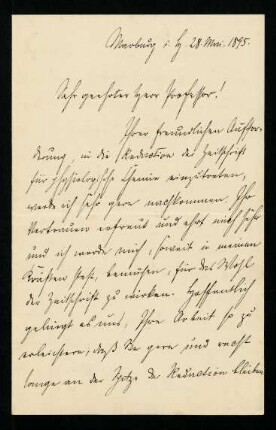 Marburg i. H. 28. Mai. 1895.
Sehr geehrter Herr Professor!
Ihrer freundlichen Auffor-
derung, in die Redaction der Zeitschrift
für physiologische Chemie einzutreten,
werde ich sehr gern nachkommen. Ihr
Vertrauen erfreut und ehrt mich sehr
und ich werde mich, soweit in meinen
Kräften steht, bemühen, für das Wohl
der Zeitschrift zu wirken. Hoffentlich
gelingt es uns, Ihre Arbeit so zu
erleichtern, daß Sie gern und recht
lange an der Spitze der Redaction bleiben